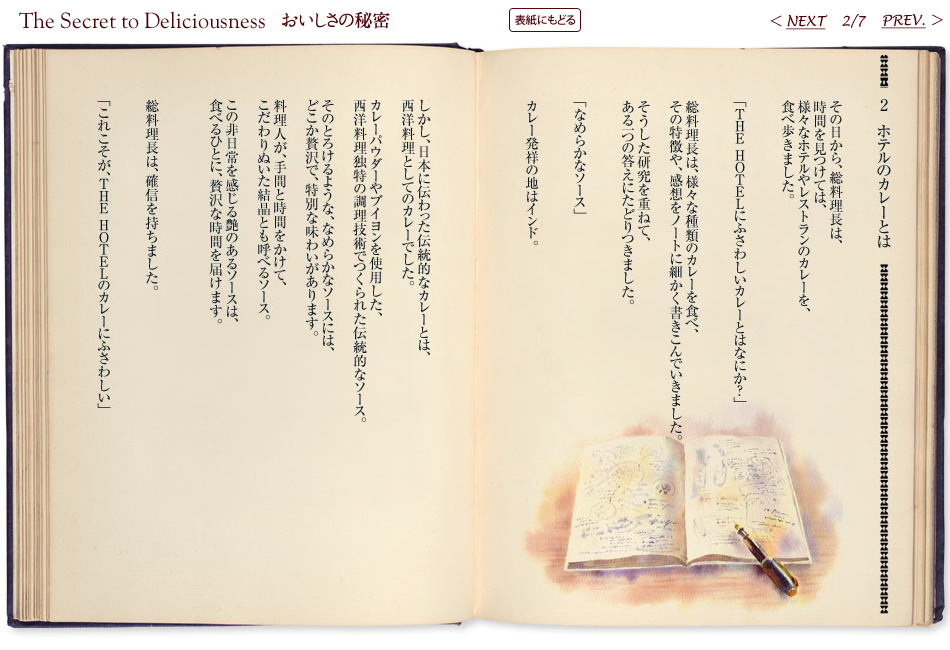 The Secret to Deliciousness おいしさの秘密
表紙にもどる
< NEXT 2/7 PREV. >
2 ホテルのカレーとは
その日から、総料理長は、
時間を見つけては、
様々なホテルやレストランのカレーを、
食べ歩きました。
「THE HOTELにふさわしいカレーとはなにか?」
総料理長は、様々な種類のカレーを食べ、
その特徴や、感想をノートに細かく書きこんでいきました。
そうした研究を重ねて、
ある一つの答えにたどりつきました。
「なめらかなソース」
カレー発祥の地はインド。
しかし、日本に伝わった伝統的なカレーとは、
西洋料理としてのカレーでした。
カレーパウダーやブイヨンを使用した、
西洋料理独特の調理技術でつくられた伝統的なソース。
そのとろけるような、なめらかなソースには、
どこか贅沢で、特別な味わいがあります。
料理人が、手間と時間をかけて、
こだわりぬいた結晶とも呼べるソース。
この非日常を感じる艶のあるソースは、
食べるひとに、贅沢な時間を届けます。
総料理長は、確信を持ちました。
「これこそが、THE HOTELのカレーにふさわしい」